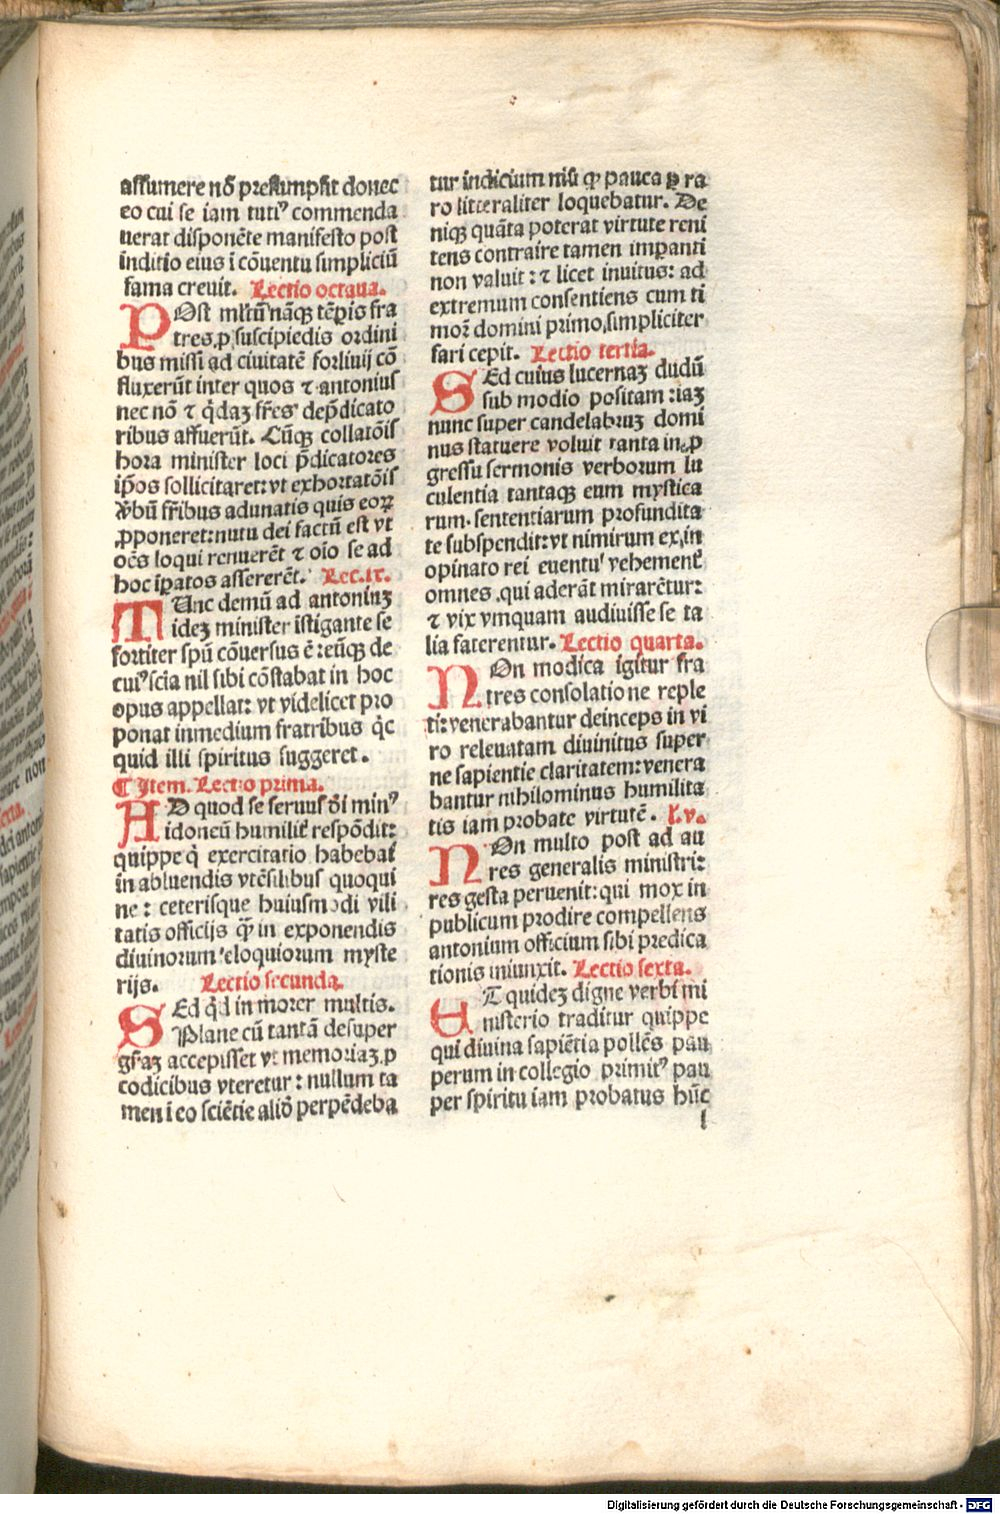 assumere nõ presumpsit donec
eo cui se iam tutiꝰ commenda
uerat disponẽte manifesto post
inditio eius ĩ cõuentu simpliciũ
fama creuit. Lectio octaua.
POst ml̃tũ nãqꝫ tẽp̱is fra
tres, ꝓ suscipiedis ordini
bus missi ad ciuitatẽ forliuij cõ
fluxerũt inter quos ⁊ antonius
nec nõ ⁊ q̃daꝫ fr̃es dep̃dicato
ribus affuerũt. Cũqꝫ collatõis
hora minister loci p̃dicatores
ip̃os sollicitaret: vt exhortatõis
v̾bũ fr̃ibus adunatis quis eoꝝ
ꝓponeret: nutu dei factũ est vt
oẽs loqui renuerẽt ⁊ oĩo se ad
hoc ĩp̱atos assererẽt. Lec.ix.
TUnc demũ ad antoninꝫ
ideꝫ minister ĩstigante se
fortiter spũ cõuersus ẽ: eũqꝫ de
cuiꝰ scia nil sibi cõstabat in hoc
opus appellat: vt videlicet pro
ponat inmedium fratribus q̃c
quid illi spiritus suggeret.
¶ Item. Lectio prima.
AD quod se seruus dĩ minꝰ
idoneũ humilit̾ respõdit:
quippe q̃ exercitatio habebat̾
in abluendis vtẽsilibus quoqui
ne: ceterisque huiusmodi vili
tatis officijs q̃ in exponendis
diuinorum eloquiorum myste
rijs. Lectio secunda.
SEd q̃d in morer multis.
Plane cũ tantã desuper
gr̃aꝫ accepisset vt memoriaꝫ ꝓ
codicibus vteretur: nullum ta
men ĩ eo sciẽtie aliõ perpẽdeba
tur indicium nisi ꝙ pauca p̱ ra
ro litteraliter loquebatur. De
niqꝫ quãta poterat virtute reni
tens contraire tamen imp̱anti
non valuit: ⁊ licet inuitus: ad
extremum consentiens cum ti
moꝛ domini primo, simpliciter
fari cepit. Lectio tertia.
SEd cuius lucernaꝫ dudũ
sub modio positam: iaꝫ
nunc super candelabruꝫ domi
nus statuere voluit tanta in ꝓ
gressu sermonis verborum lu
culentia tantaqꝫ eum mystica
rum sententiarum profundita
te subspendit: vt nimirum ex, in
opinato rei euentuꝰ vehement̾
omnes qui aderãt mirarẽtur:
⁊ vix vmquam audiuisse se ta
lia faterentur. Lectio quarta.
NOn modica igitur fra
tres consolatione reple
ti: venerabantur deinceps in vi
ro releuatam diuinitus super
ne sapientie claritatem: venera
bantur nihilominus humilita
tis iam probate virtutẽ. L.v.
NOn multo post ad au
res generalis ministri:
res gesta peruenit: qui mox in
publicum prodire compellens
antonium officium sibi predica
tionis iniunxit. Lectio sexta.
ET quideꝫ digne verbi mi
nisterio traditur quippe
qui diuina sapiẽtia pollẽs pau
perum in collegio primitꝰ pau
per spiritu iam probatus hũc
l
Digitalisierung gefördert durch die Deutsche Forschungsgemeinschaft - DFG